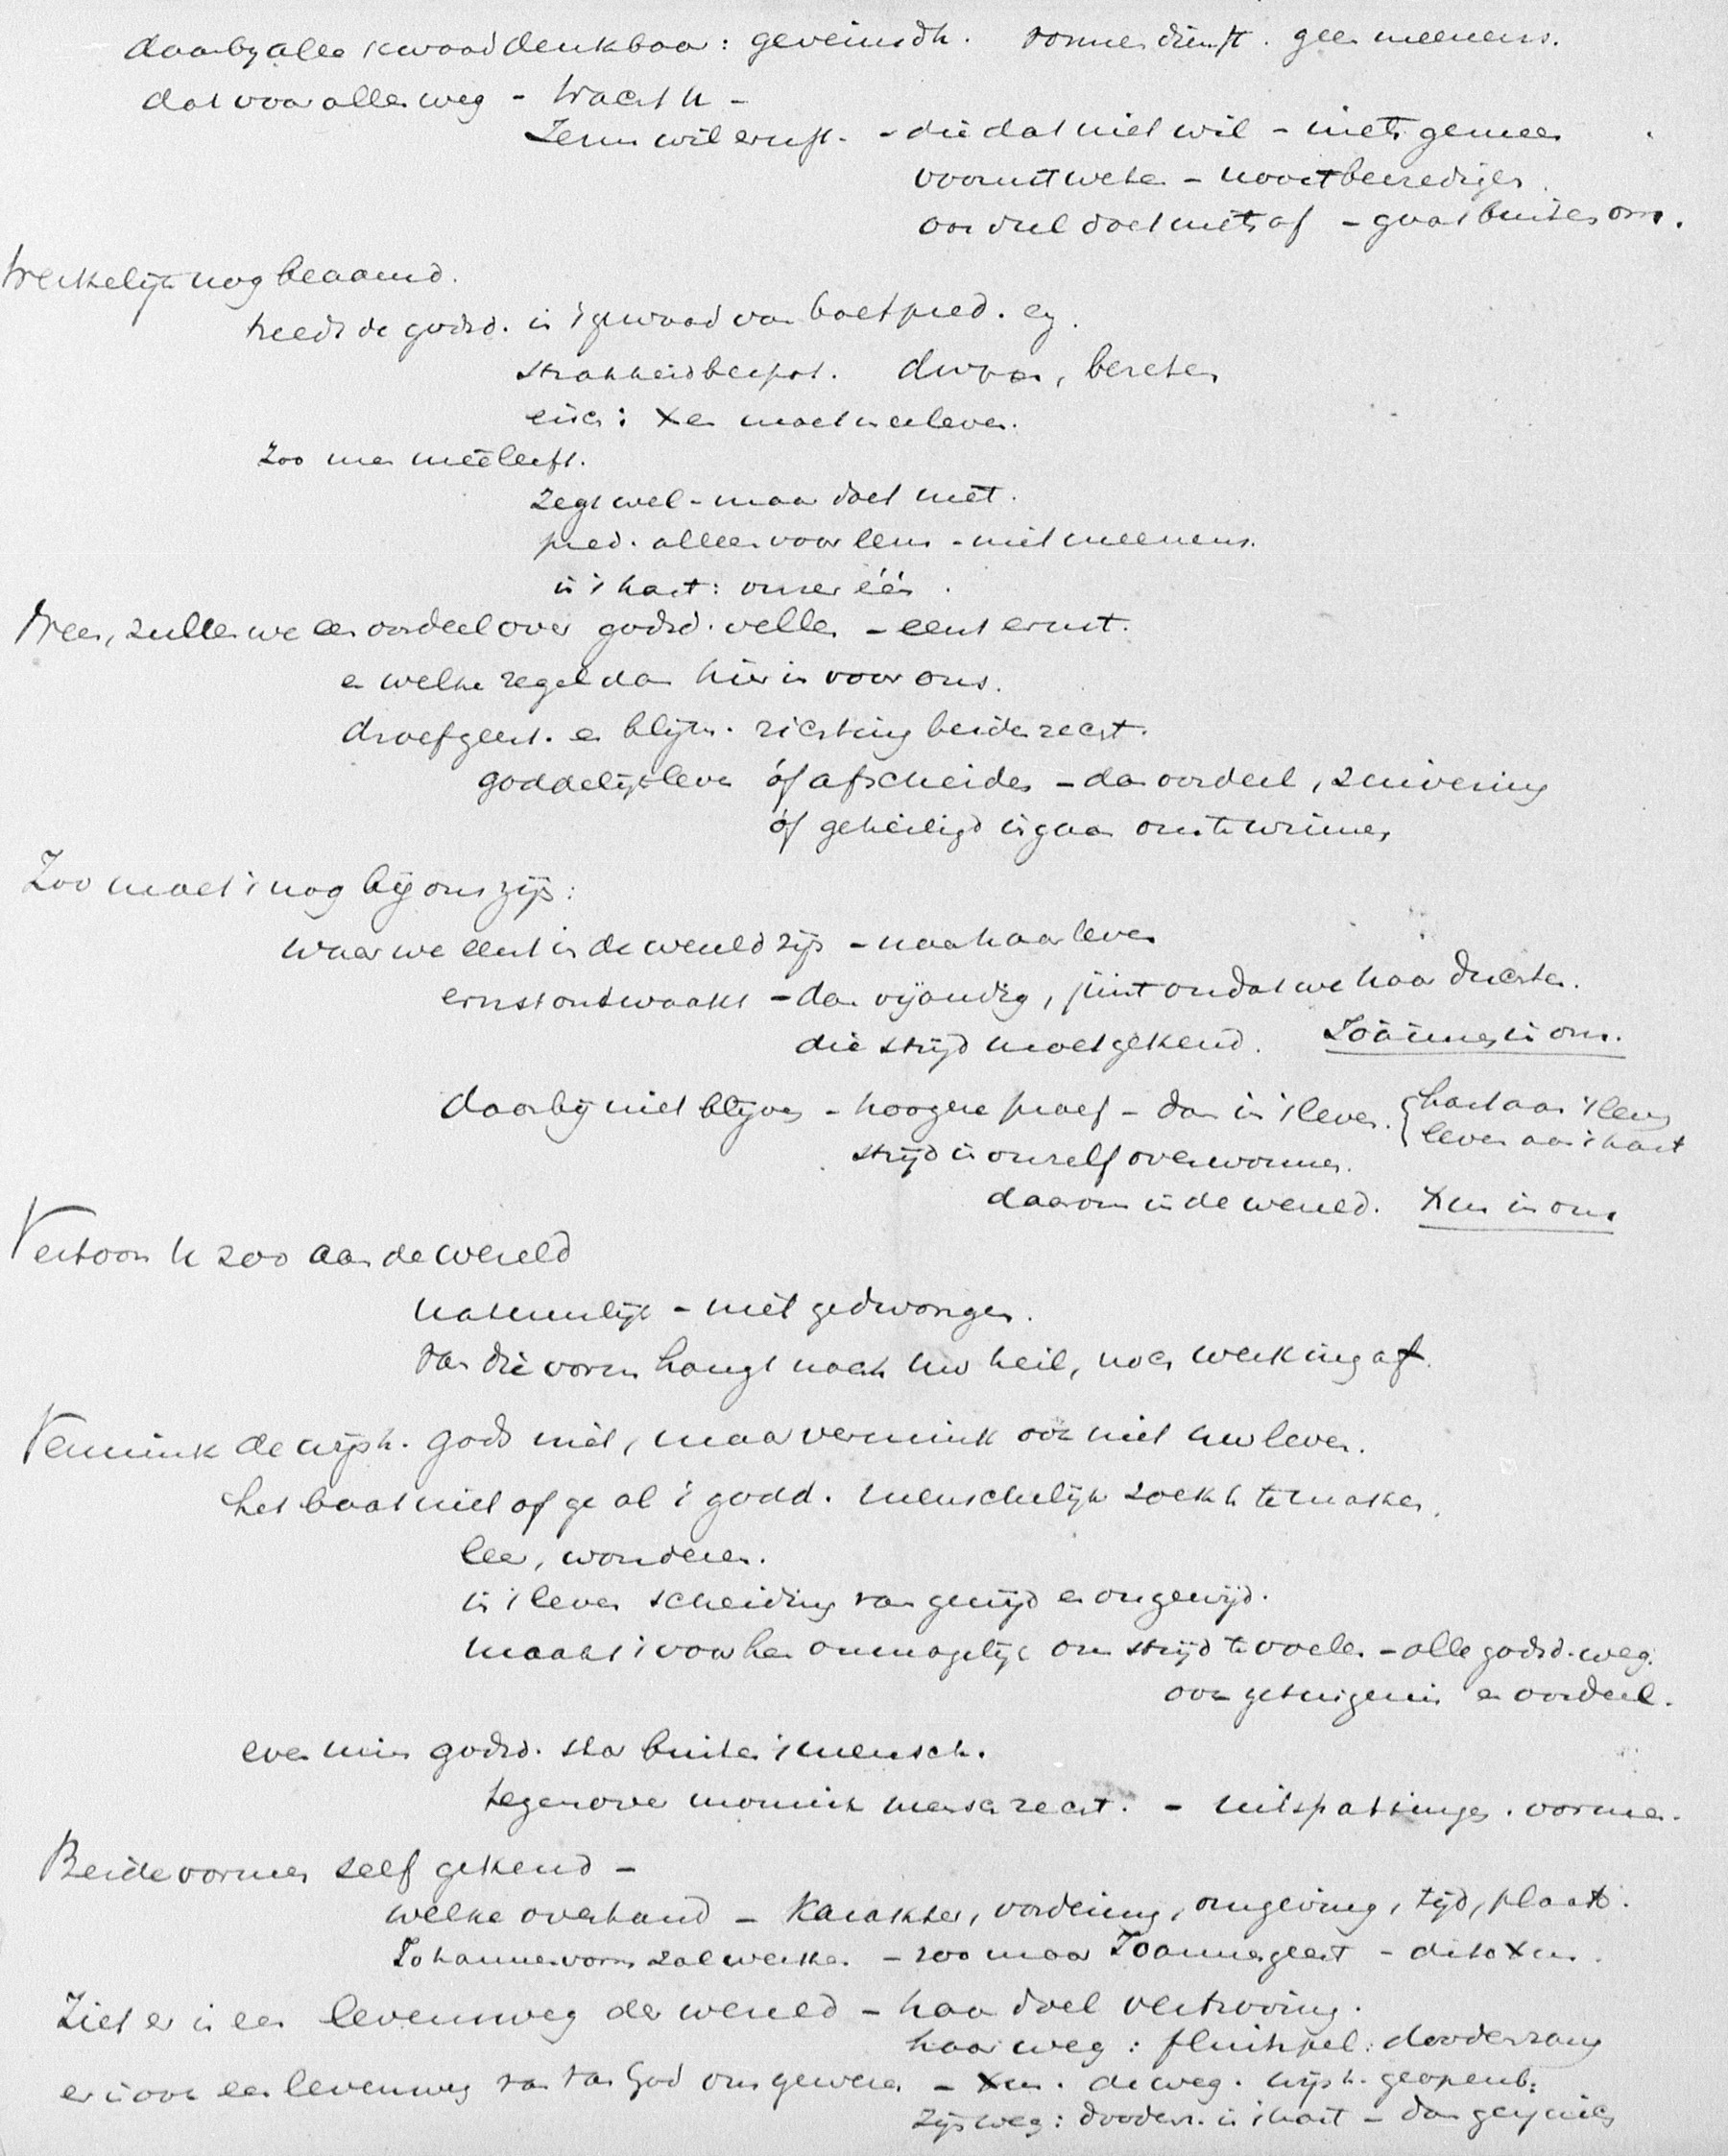 daarby alle kwaad denkbaar: geveinsdh. vormendienst. geen meenens.
dat voor aller weg - wacht u -
Jezus wil ernst. - die dat niet wil - niets gemeen
vooruit weten - nooit bevredigen.
oordeel doet niets af - gaat buiten om.
Werkelijk nog beaamd.
treedt de godsd. in 't gewaad van boetpred. e.g.
strakheid bespot. dwaas, bezeten
eisch: Xen moet meeleven.
Zoo men meêleeft.
zegt wel - maar doet niet.
pred. alleen voor leus - niet meenens.
in 't hart: onzer één.
Neen, zullen we een oordeel over godsd. vellen - eerst ernst.
en welke regel dan hier is voor ons.
droefgeest. en blijm. richting beide recht.
goddelijk leven óf afscheiden - dan oordeel, zuivering
óf geheiligd ingaan om te winnen
Zoo moet 't nog bij ons zijn:
waar we eerst in de wereld zijn - naar haar leven
ernst ontwaakt - dan vijandig, juist omdat we haar duchten.
die strijd moet gekend. Joännes in ons.
daarbij niet blijven - hoogere proef - dan in 't leven. { hart aan 't leven
strijd in onszelf overwonnen. { leven aan 't hart
daarom in de wereld. Xus in ons
Vertoon u zoo aan de wereld
natuurlijk - niet gedwongen.
van die vorm hangt noch uw heil, noch werking af.
Vermink de wijsh. Gods niet, maar vermink ook niet uw leven.
het baat niet of ge al 't godd. menschelijk zoekt te maken.
leer, wonderen.
in 't leven scheiding van gewijd en ongewijd.
maakt 't voor hen onmogelijk om strijd te voelen - alle godsd. weg.
ook getuigenis en oordeel.
evenmin godsd. sta buiten 't mensch.
tegenover monnik mensch recht. - uitspattingen. vormen.
Beide vormen zelf gekend -
welke overhand - karakter, vordering, omgeving, tijd, plaats.
Johannesvorm zal werken - zoo maar Joannesgeest - dito Xus.
Ziet er is een levensweg der wereld - haar doel verstrooiing.
haar weg: fluitspel: doodenzang
er is ook een levensweg van van God ons gewezen - Xus. de weg. wijsh. geopenb:
Zijn weg: doodenz. in 't hart - dan gejuich